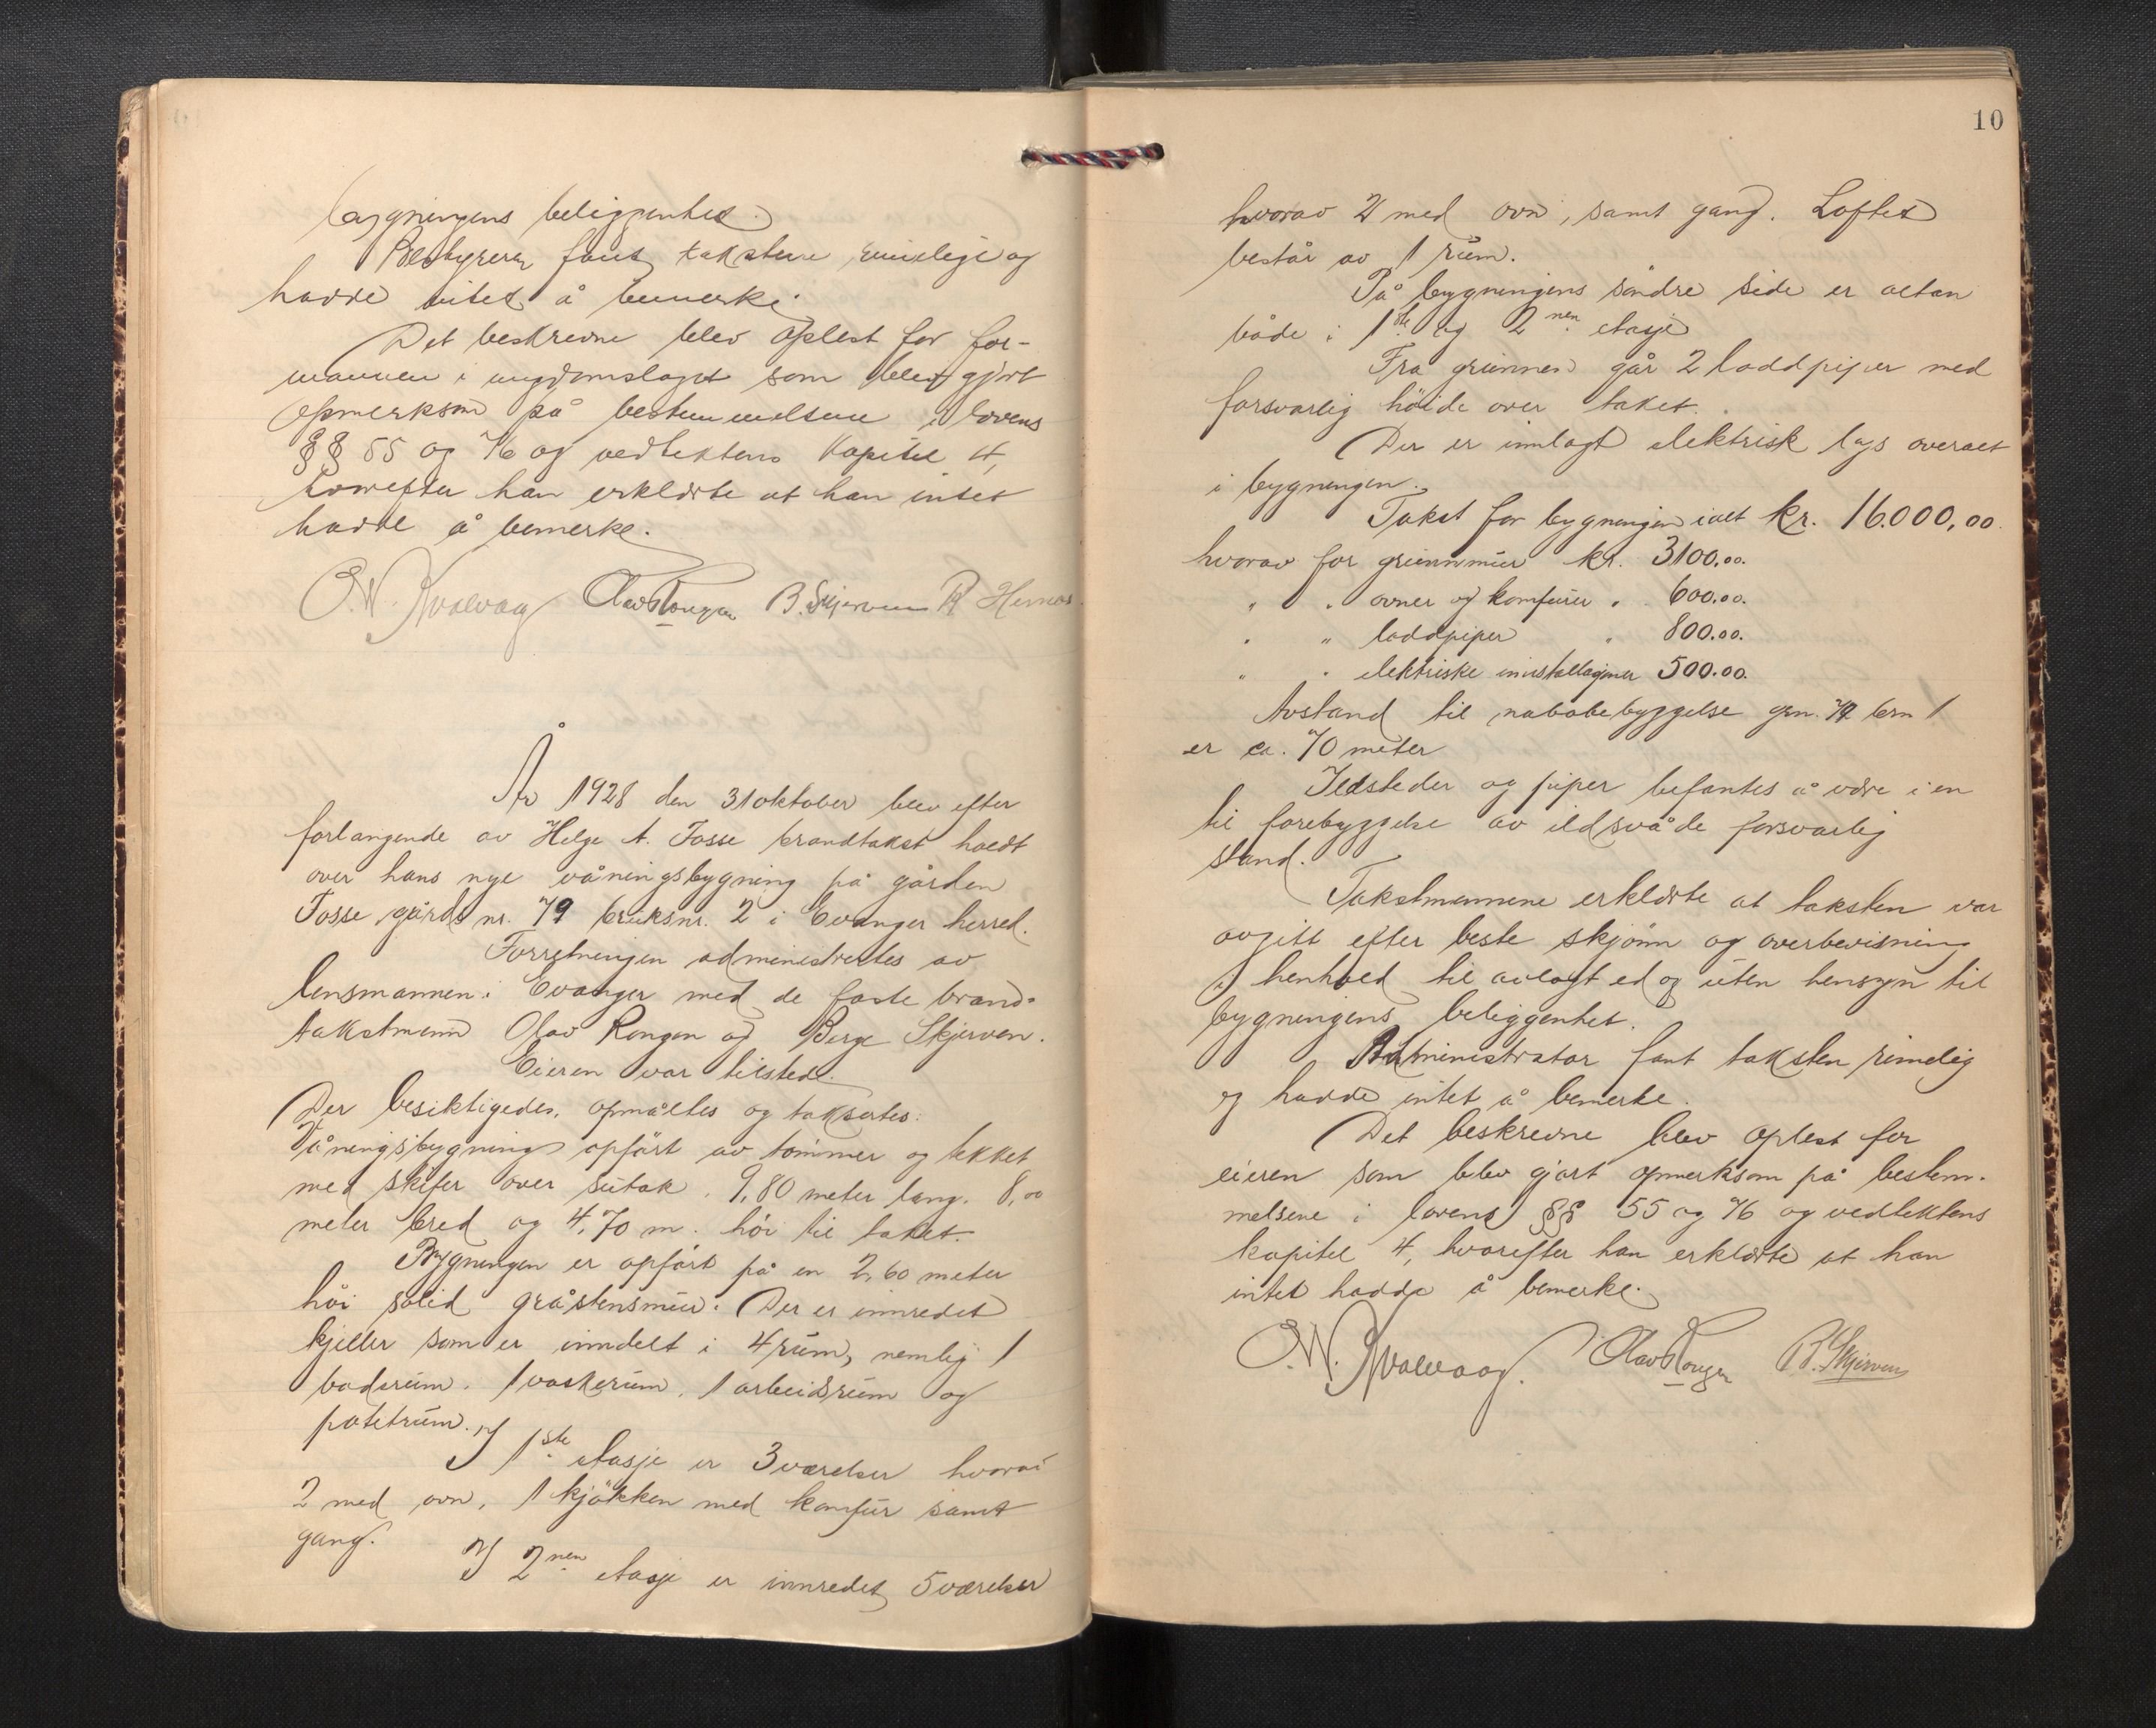 bygningens beliggenhet.
Bestyreren fant takstene rimelige og
hadde intet å bemerke.
Det beskrevne blev oplest for for-
mannen i ungdomslaget som blev gjort
opmerksom på bestemmelsene i lovens
§§ 55 og 76 og vedtektens kapitel 4,
hvorefter han erklærte at han intet
hadde å bemerke.
O.N. Kvalvaag Olav Rongen B. Skjerven R Hernes
År 1928 den 31 oktober blev efter
forlangende av Helge A. Fosse brandtakst holdt
over hans nye våningsbygning på gården
Fosse gårds nr. 79 bruksnr. 2 i Evanger herred.
Forretningen administrertes av
lensmannen i Evanger med de faste brand-
takstmenn Olav Rongen og Berge Skjerven.
Eieren var tilstede.
Der besiktigedes, opmåltes og taksertes:
Våningsbygning opfört av tömmer og tekket
med skifer over sutak. 9,80 meter lang. 8,00
meter bred og 4,70 m. höi til taket.
Bygningen er opfört på en 2,60 meter
höi solid gråstensmur. Der er innredet
kjeller som er inndelt i 4 rum, nemlig 1
baderum. 1 vaskerum, 1 arbeidsrum og
potetrum.
I 1ste etasje er 3 værelser hvorav
2 med ovn, 1 kjökken med komfur samt
gang.
I 2nen etasje er innredet 5 værelser
10
hvorav 2 med ovn, samt gang. Loftet
består av 1 rum.
På bygningens söndre side er altan
både i 1ste og 2nen etasje
Fra grunnen går 2 loddpiper med
forsvarlig höide over taket.
Der er innlagt elektrisk lys overalt
i bygningen.
Takst for bygningen ialt kr. 16.000,00.
hvorav for grunnmur kr. 3100.00.
" " ovner og komfurer " 600.00.
" " loddpiper " 800.00.
" " elektriske innstallasjoner 500.00.
Avstand til nabobebyggelse grn. 79 brn 1
er ca. 70 meter
Ildsteder og piper befantes å være i en
til forebyggelse av ildsvåde forsvarlig
stand.
Takstmennene erklærte at taksten var
avgitt efter beste skjönn og overbevisning
i henhold til avlagt ed og uten hensyn til
bygningens beliggenhet.
Administrator fant taksten rimelig
og hadde intet å bemerke.
Det beskrevne blev oplest for
eieren som blev gjort opmerksom på bestem-
melsene i lovens §§ 55 og 76 og vedtektens
kapitel 4, hvorefter han erklærte at han
intet hadde å bemerke.
O.N. Kvalvaag. Olav Rongen B. Skjerven